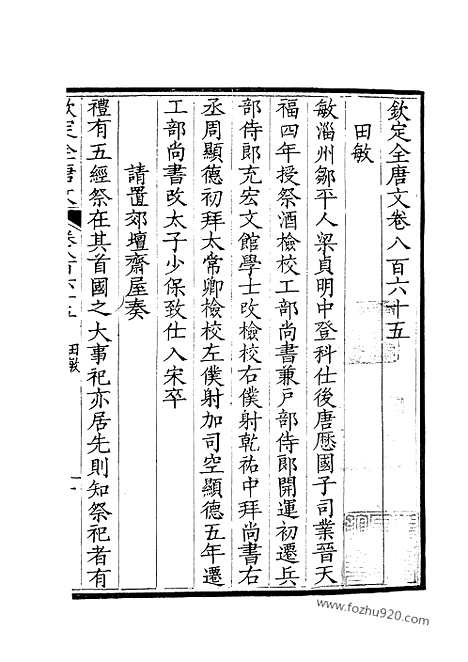 欽定全唐文卷八百六十五
田敏
敏淄州鄒平人梁貞明中登科仕後唐歷國子司業晉天
福四年授祭酒檢校工部尚書兼戶部侍郎開運初遷兵
部侍郎充宏文館學士改檢校右僕射乾祐中拜尚書右
丞周顯德初拜太常卿檢校左僕射加司空顯德五年遷
工部尚書改太子少保致仕入宋卒
請置郊壇齋屋奏
禮有五經祭在其首國之大事祀亦居先則知祭祀者有
欽定全唐文 卷八百六十五 田敏 一
www.fozhu920.com